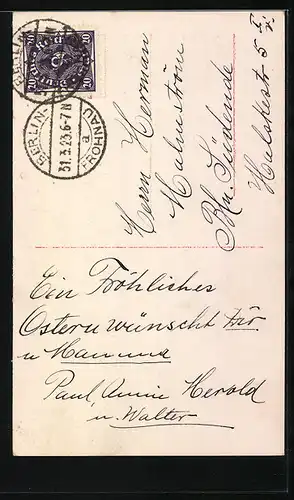 BERLIN-
31.3.23.6-7N
a
FROHNAU
20
20
Herrn Herman
Malmström
Bln. Südende
Halskestr. 5
Ein Fröhliches
Ostern wünscht Dir
u Mamma
Paul, Annie Herold
u. Walter